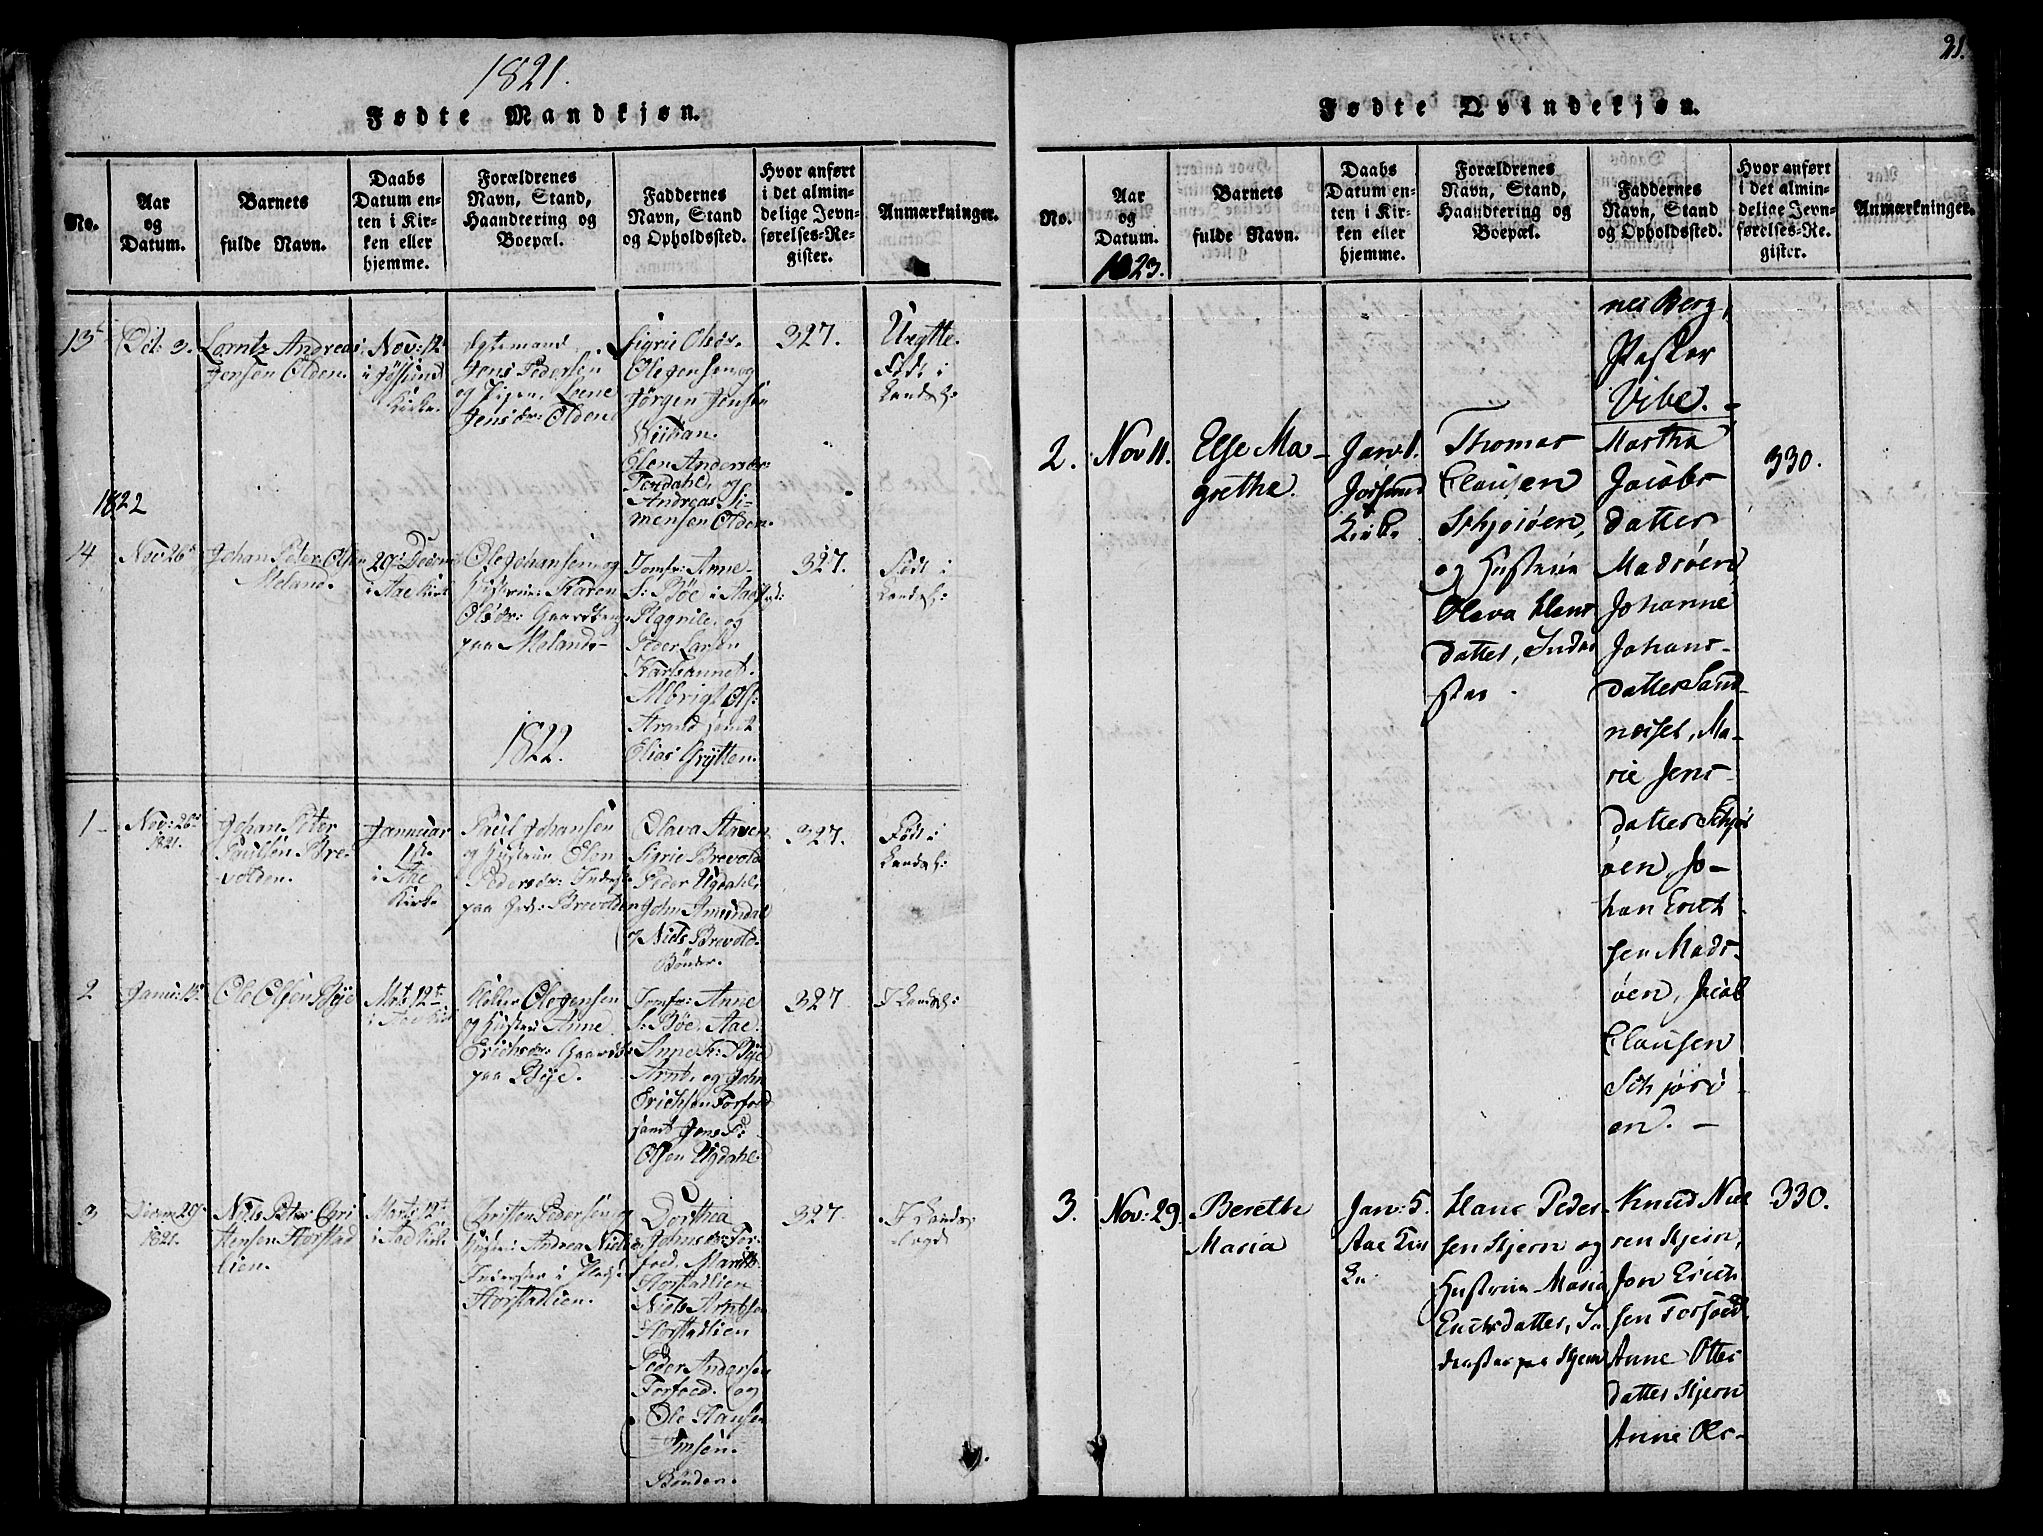 1821.
Fødte Mandkjøn.
No.
Aar
og
Datum.
Barnets
fulde Navn.
Daabs
Datum en-
ten i Kir-
ken eller
hjemme.
Forældrenes
Navn, Stand,
Haandtering og
Boepæl.
Faddernes
Navn, Stand
og Opholdssted.
Hvor anført
i det almin-
delige Jevn-
førelses-Re-
gister.
Anmærkninger.
13
Oct: 3.
Lorntz Andreas
Jensen Olden.
Nov: 12
i Jøssund
Kirke.
Egtemand
Jens Pedersen
og Pigen Lene
Jensdr: Olden
Sigrie Olsdr.
Ole Jensen og
Jørgen Jensen
Elen Andersdr:
Andreas Si-
mensen Olden.
327.
Uægte.
Født i
1822
14
Nov 26
Johan Peter Olsen
Meland.
29 Decem
i Aae Kirk
Ole Johansen og
Hustrue: Karen
Olsdr: Gaardb
paa Meland
Jomfr: Anne
S: Bøe i Aae
og
Peder Larsen
Karlsannet.
Albrigt Ols:
Strand samt
Elias Grytten.
327.
Født i
1822.
1
Nov: 26
1821.
Johan Peter
Paulsen Bre-
volden.
Januar
1
i Aae
Kirk.
Paul Johansen
og Hustrue Elen
Pedersdr: Inderst
paa Brevolden
Olava Staven
Sigrie Brevold
Peder Ugdahl
John Amundal
og Niels Brevold
Bønder.
327.
Født i
2
Janu: 13
Ole Olsen Bye
Mrts 12
i Aae Kirk
Ole Jensen
og Hustrue Anne
Erichsdr: Gaardb:
paa Bye.
Jomfr: Anne
S: Bøe, Aae
Anne Bye
Arnt, og John
Erichsen Forfod
samt Jens
Olsen Ugdahl.
327
3
Decem 29
1821.
Niels Peter Chri
stensen Horstad
lien.
Marts 12
i Aae Kirk
Christen Pedersen og
Hustrue: Andrea Niels
Inderster i Plads:
Horstadlien.
Dorthea
Johnsdr For-
fod, Marith
Horstadlien
Niels Arntsen
Horstadlien
Peder Andersen
Forfoed. og
Ole Hansen
Bønder.
327
21.
Fødte Qvindekjøn.
No.
Aar
og
Datum.
1823.
Barnets
fulde Navn.
Daabs
Datum en-
ten i Kir-
ken eller
hjemme.
Forældrenes
Navn, Stand,
Haandtering og
Boepæl.
Faddernes
Navn, Stand
og Opholdssted.
Hvor anført
i det almin-
delige Jevn-
førelses-Re-
gister.
Anmærkninger.
nes Berg,
Peder
Vibe. -
2.
Nov 11.
Else Ma-
grethe.
Jan: 1.
Jøssund
Kirke.
Thomas
Clausen
Schjørøen,
og Hustrue
Olava Hans
datter, Inder
ster.
Martha
Jacobs
datter
Madsøen,
Johanne
Johans-
datter Sand-
næsset, Ma-
rie Jens-
datter Schjør
øen, Jo-
han Erich
sen Mads-
øen, Jacob
Clausen
Schjørø-
en. -
330.
3.
Nov: 29.
Berethe
Maria
Jan: 5.
Aae Kir
ke
Hans Peder
sen Stjern og
Hustrue Maria
Erichsdatter, In
derster paa Stjern
Knud Niel
sen Stjern,
Jon Erich
sen Forfoed
Anne Otter
datter Stjern
Anne Ols-
330.